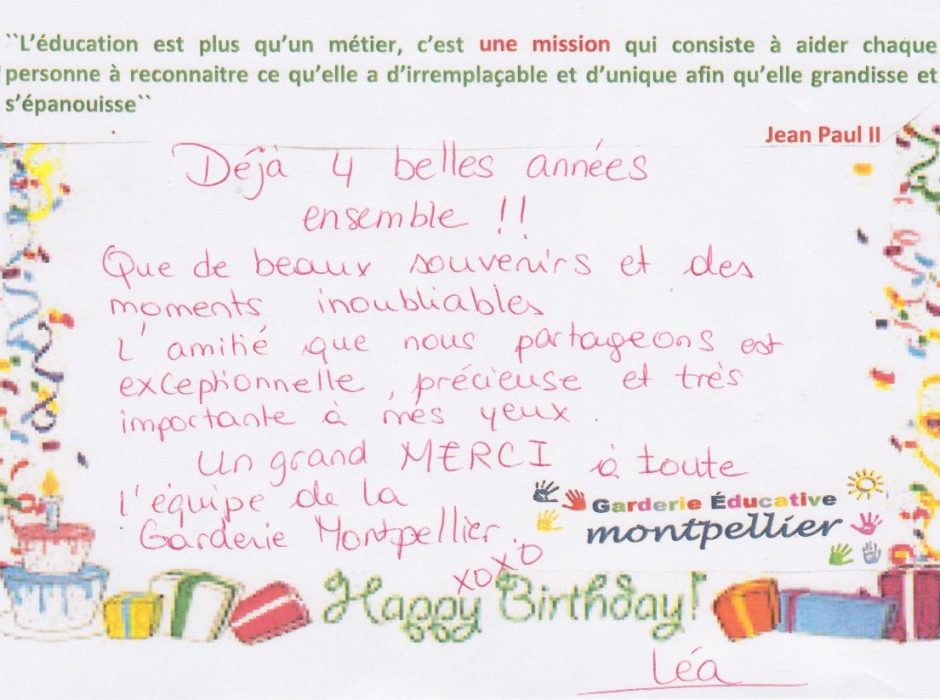 ``L'éducation est plus qu'un métier, c'est une mission qui consiste à aider chaque
personne à reconnaitre ce qu'elle a d'irremplaçable et d'unique afin qu'elle grandisse et
s'épanouisse``
Jean Paul II
Déjà 4 belles années
ensemble !!
Que de beaux souvenirs et des
moments inoubliables
L'amitié que nous partageons est
exceptionnelle, précieuse et très
importante à mes yeux.
Un grand MERCI à toute
l'équipe de la
Garderie Montpellier.
xoxo
Garderie Éducative
montpellier
Happy Birthday!
Léa